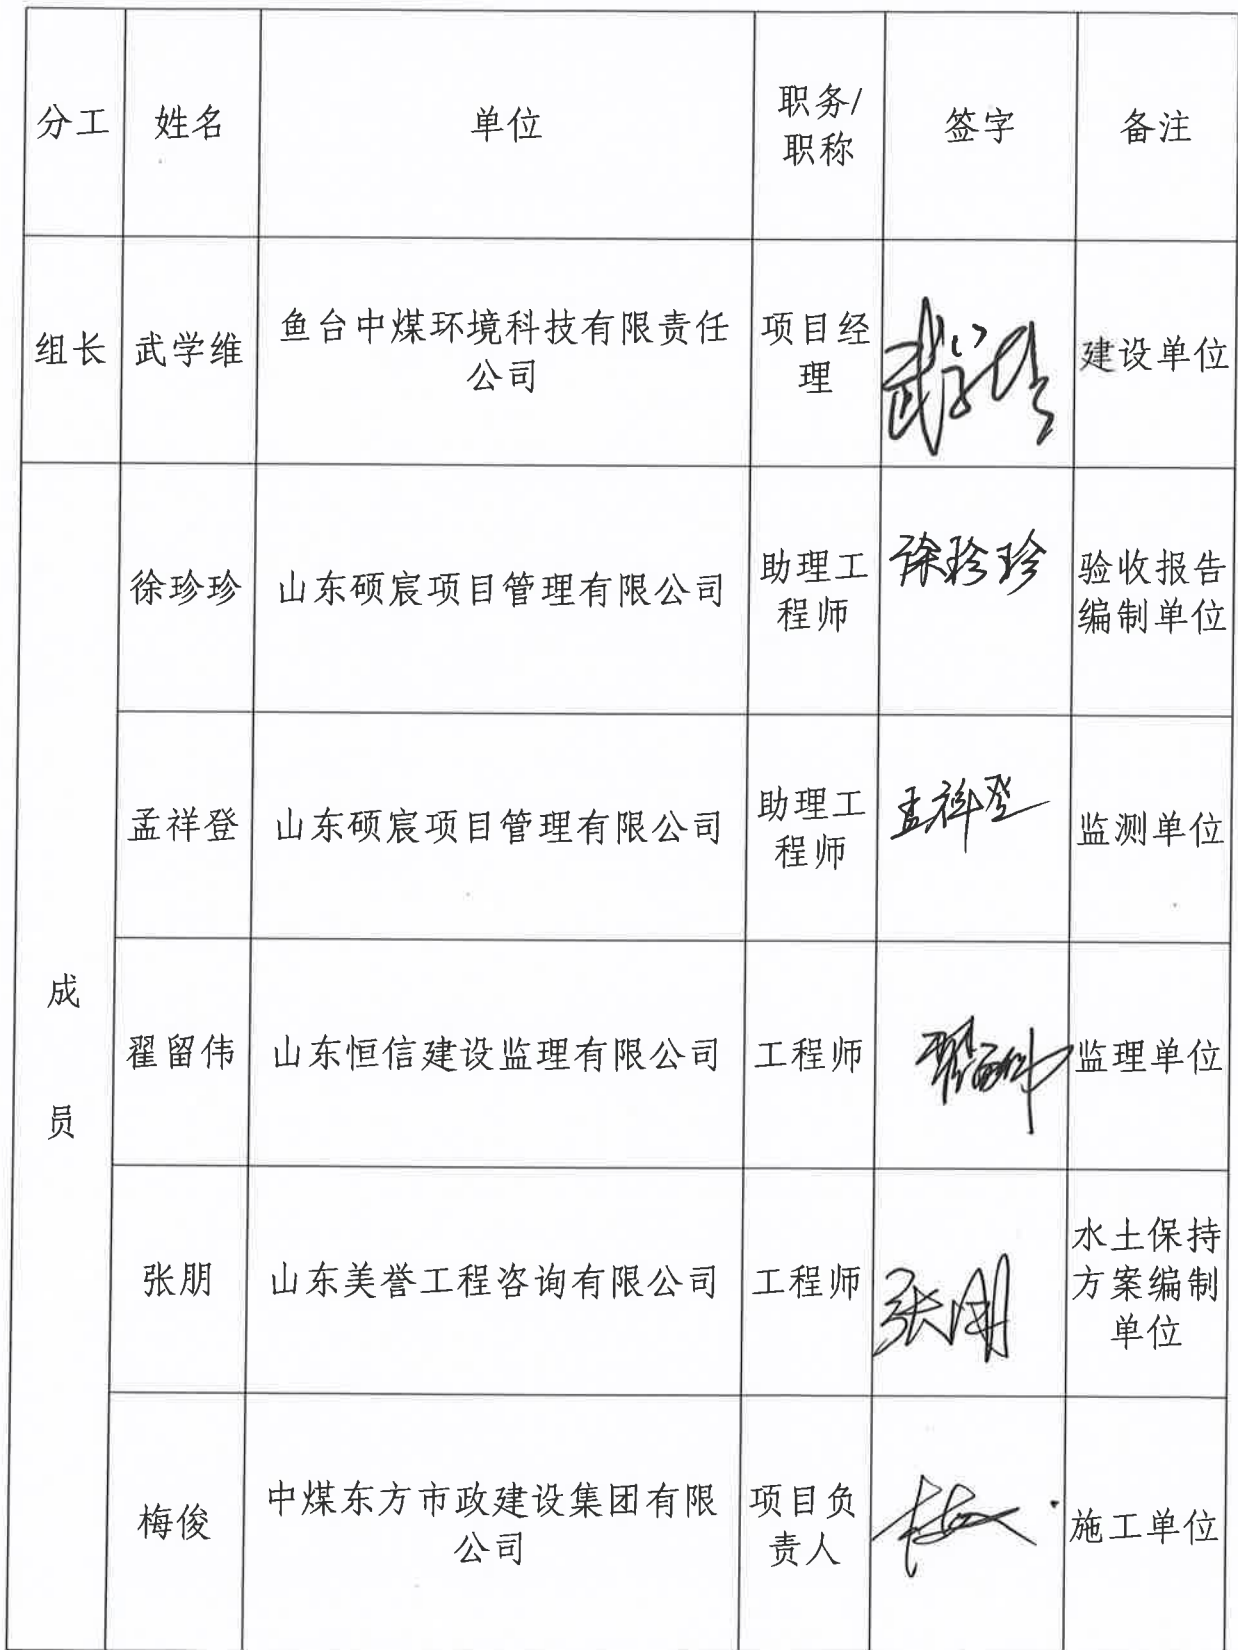 分工
姓名
单位
职务/
职称
签字
备注
组长
武学维
鱼台中煤环境科技有限责任
公司
项目经
理
武学维
建设单位
成
员
徐珍珍
山东硕宸项目管理有限公司
助理工
程师
徐珍珍
验收报告
编制单位
孟祥登
山东硕宸项目管理有限公司
助理工
程师
孟祥登
监测单位
翟留伟
山东恒信建设监理有限公司
工程师
翟留伟
监理单位
张朋
山东美誉工程咨询有限公司
工程师
张朋
水土保持
方案编制
单位
梅俊
中煤东方市政建设集团有限
公司
项目负
责人
施工单位